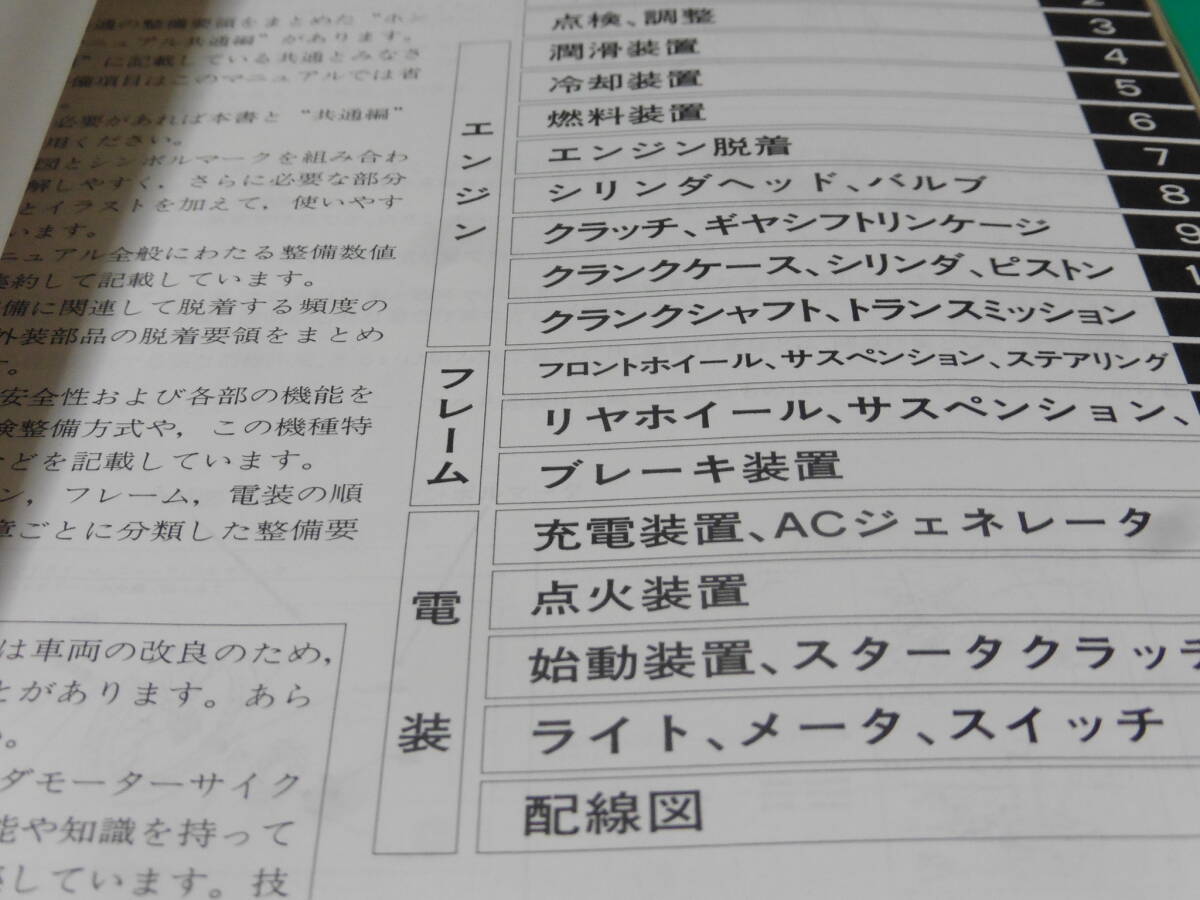 共通の整備要領をまとめた“ホン
マニュアル共通編”があります。
”に記載している共通とみなさ
備項目はこのマニュアルでは省
必要があれば本書と“共通編”
用ください。
図とシンボルマークを組み合わ
解しやすく，さらに必要な部分
とイラストを加えて，使いやす
います。
ニュアル全般にわたる整備数値
要約して記載しています。
備に関連して脱着する頻度の
外装部品の脱着要領をまとめ
す。
安全性および各部の機能を
検整備方式や，この機種特
などを記載しています。
ン，フレーム，電装の順
章ごとに分類した整備要
は車両の改良のため，
とがあります。あら
ダモーターサイク
能や知識を持って
しています。技
2
点検、調整 3
エンジン
潤滑装置 4
冷却装置 5
燃料装置 6
エンジン脱着 7
シリンダヘッド、バルブ 8
クラッチ、ギヤシフトリンケージ 9
クランクケース、シリンダ、ピストン 1
クランクシャフト、トランスミッション
フレーム
フロントホイール、サスペンション、ステアリング
リヤホイール、サスペンション、
ブレーキ装置
電装
充電装置、ACジェネレータ
点火装置
始動装置、スタータクラッチ
ライト、メータ、スイッチ
配線図